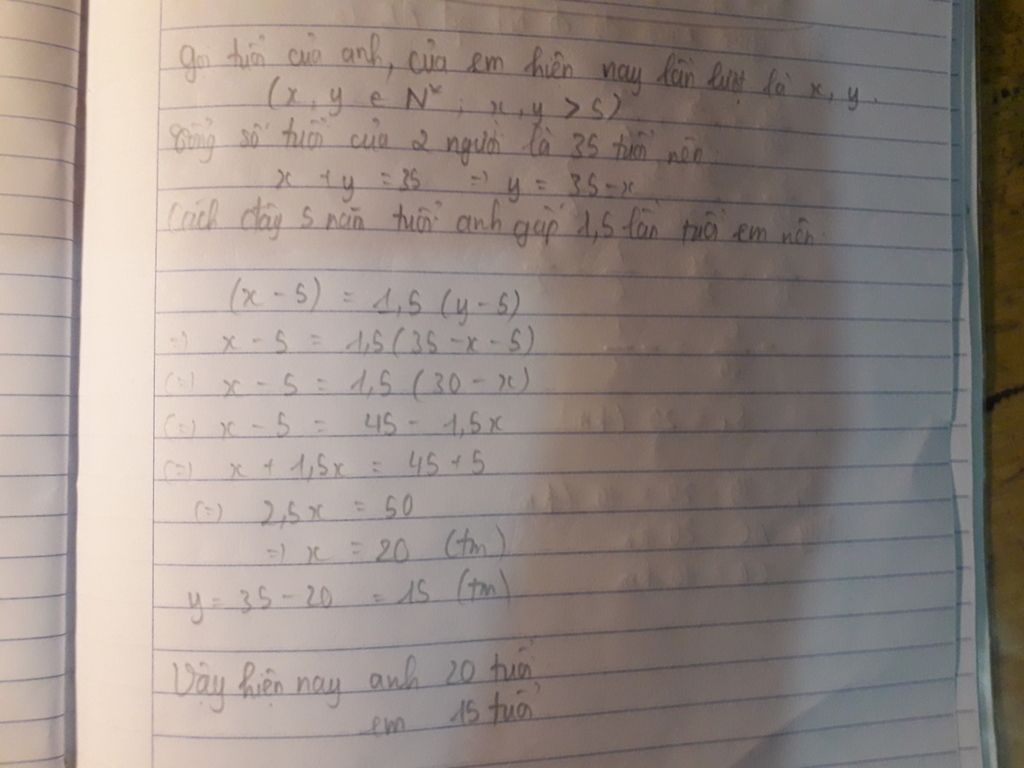 Gọi tuổi của anh, của em hiện nay lần lượt là x, y.
(x, y ∈ N*; x, y > 5)
Tổng số tuổi của 2 người là 35 tuổi nên:
x + y = 35 => y = 35 - x
Cách đây 5 năm tuổi anh gấp 1,5 lần tuổi em nên:
(x - 5) = 1,5 (y - 5)
=> x - 5 = 1,5 (35 - x - 5)
(=) x - 5 = 1,5 (30 - x)
(=) x - 5 = 45 - 1,5x
(=) x + 1,5x = 45 + 5
(=) 2,5x = 50
=> x = 20 (tm)
y = 35 - 20 = 15 (tm)
Vậy hiện nay anh 20 tuổi
em 15 tuổi